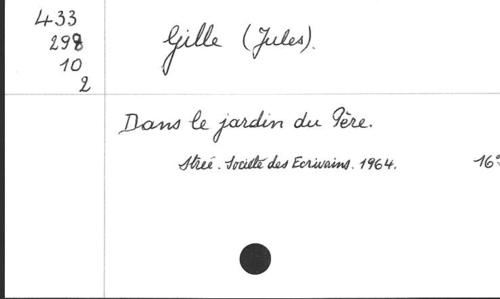 433
298
10
2
Gille (Jules).
Dans le jardin du Père.
Strée. Société des Ecrivains. 1964. 16°